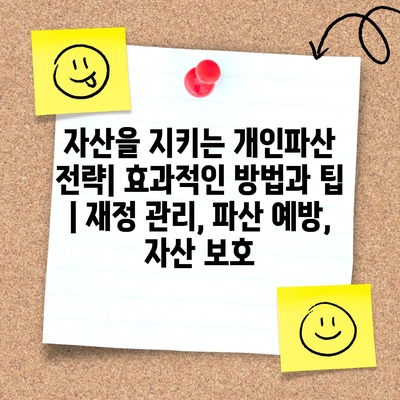 자산을 지키는 개인파산
전략| 효과적인 방법과 팁
| 재정 관리, 파산 예방,
자산 보호